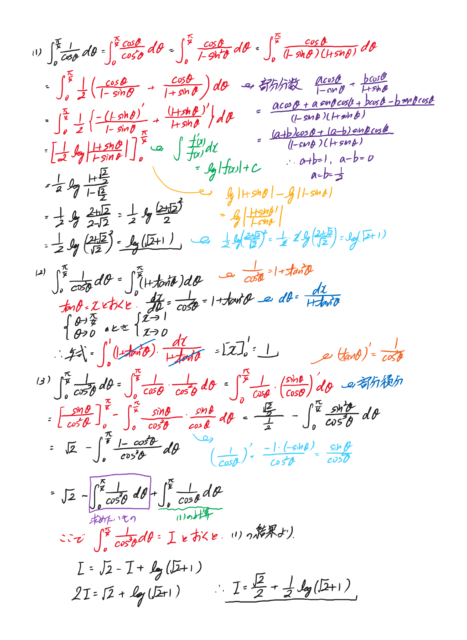 (1) ∫₀^{π/4} 1/cosθ dθ = ∫₀^{π/4} cosθ/cos²θ dθ = ∫₀^{π/4} cosθ/(1-sin²θ) dθ = ∫₀^{π/4} cosθ/((1-sinθ)(1+sinθ)) dθ
= ∫₀^{π/4} 1/2 (cosθ/(1-sinθ) + cosθ/(1+sinθ)) dθ ← 部分分数 acosθ/(1-sinθ) + bcosθ/(1+sinθ)
= ∫₀^{π/4} 1/2 {-(1-sinθ)'/(1-sinθ) + (1+sinθ)'/(1+sinθ)} dθ = (acosθ + asinθcosθ + bcosθ - bsinθcosθ)/((1-sinθ)(1+sinθ))
= [1/2 log|(1+sinθ)/(1-sinθ)|]₀^{π/4} ← ∫ f'(x)/f(x) dx = ((a+b)cosθ + (a-b)sinθcosθ)/((1-sinθ)(1+sinθ))
= log|f(x)| + C ∴ a+b=1, a-b=0
a=b=1/2
= 1/2 log (1+√2/2)/(1-√2/2)
log|1+sinθ| - log|1-sinθ|
= 1/2 log (2+√2)/(2-√2) = 1/2 log (2+√2)²/2 = log|(1+sinθ)/(1-sinθ)|
= 1/2 log ((2+√2)/√2)² = log(√2+1) ← 1/2 log((2+√2)/√2)² = 1/2・2 log((2+√2)/√2) = log(√2+1)
(2) ∫₀^{π/4} 1/cos²θ dθ = ∫₀^{π/4} (1+tan²θ) dθ ← 1/cos²θ = 1+tan²θ
tanθ = x とおくと dx/dθ = 1/cos²θ = 1+tan²θ ← dθ = dx/(1+tan²θ)
{θ→π/4 θ→0 のとき {x→1 x→0
∴ 与式 = ∫₀¹ (1+tan²θ)・dx/(1+tan²θ) = [x]₀¹ = 1 ← (tanθ)' = 1/cos²θ
(3) ∫₀^{π/4} 1/cos³θ dθ = ∫₀^{π/4} 1/cosθ・1/cos²θ dθ = ∫₀^{π/4} 1/cosθ・(sinθ/cosθ)' dθ ← 部分積分
= [sinθ/cos²θ]₀^{π/4} - ∫₀^{π/4} sinθ/cos²θ・sinθ/cosθ dθ = (√2/2)/(1/2) - ∫₀^{π/4} sin²θ/cos³θ dθ
= √2 - ∫₀^{π/4} (1-cos²θ)/cos³θ dθ (1/cosθ)' = -1・(-sinθ)/cos²θ = sinθ/cos²θ
= √2 - ∫₀^{π/4} 1/cos³θ dθ + ∫₀^{π/4} 1/cosθ dθ
求めたいもの (1)の計算
ここで ∫₀^{π/4} 1/cos³θ dθ = I とおくと、(1)の結果より
I = √2 - I + log(√2+1)
2I = √2 + log(√2+1) ∴ I = √2/2 + 1/2 log(√2+1)